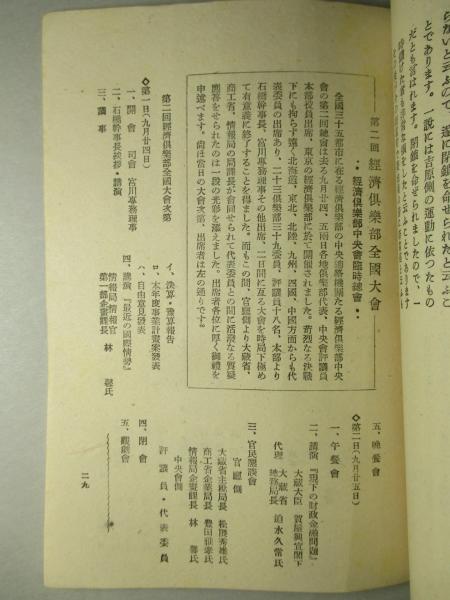 らかいと云ふので、遂に閉鎖を命ぜられたと云ふこ
とであります。説には吉原側の運動に依つたもの
だとも言はれます。閉鎖を命ぜられましたので、一
第二回 經濟俱樂部全國大會
經濟俱樂部中央會臨時總會
全國三十五都市に在る經濟俱樂部の中央連絡機關たる經濟俱樂部中央
會の第二回總會は去る九月廿四、五兩日各地俱樂部代表、中央會評議員
本部役員出席、東京の經濟俱樂部に於て開催されました。苛烈なる決戰
下にも拘らず遠く北海道、東北、北陸、九州、四國、中國方面からも代
表委員の出席あり、二十三俱樂部三十九委員、評議員十八名、本部より
石橋幹事長、宮川專務理事その他出席、二日間に亙る大會を時局下極め
て有意義に終了することを得ました。而もこの間、官廳側より大藏省、
商工省、情報局の局課長が會同せられて代表委員との間に活潑なる質疑
應答をせられたのは一段の光彩を添えました。出席者各位に厚く御禮を
申述べます。尚は當日の大會次第、出席者は左の通りです。
第二回經濟俱樂部全國大會次第
◇第一日(九月廿四日)
一、開會 司會 宮川專務理事
二、石橋幹事長挨拶・講演
三、議事
イ、決算・豫算報告
ロ、本年度事業計畫案發表
ハ、自由意見發表
四、講演『最近の國際情勢』
情報局情報官
第一部企畫課長 林 馨氏
五、晩餐會
◇第二日(九月廿五日)
一、午餐會
二、講演『現下の財政金融問題』
大藏大臣 賀屋興宣閣下
代理 大藏省總務局長 迫水久常氏
三、官民懇談會
官廳側
大藏省主税局長 松隈秀雄氏
商工省企業局長 豊田雅孝氏
情報局企畫課長 林 馨氏
中央會側
評議員・代表委員
四、閉會
五、觀劇會
二九